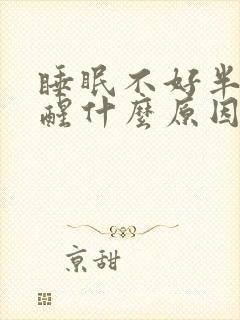 睡眠不好半
醒什麼原因
京甜